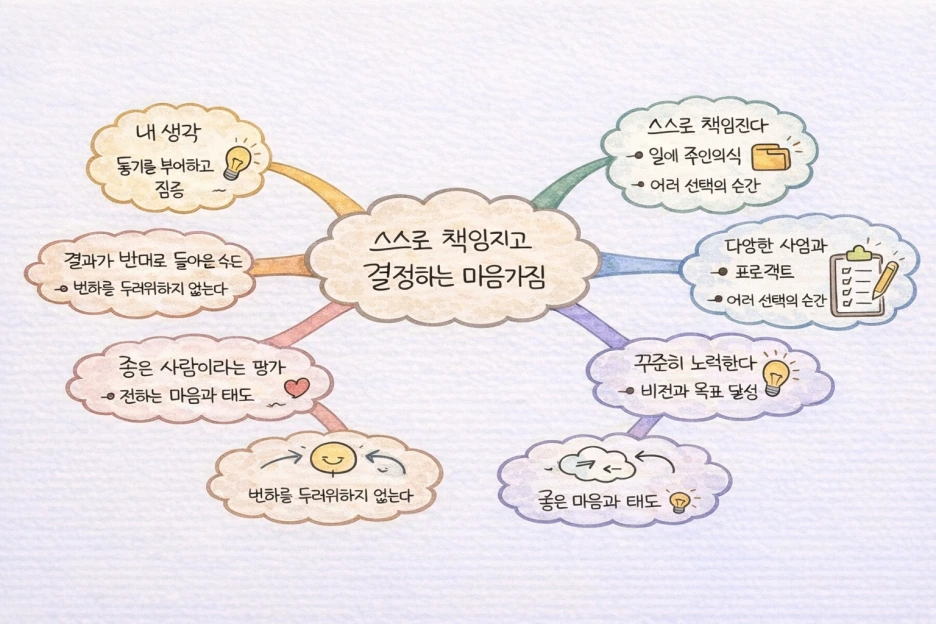 내 생각
동기를 부여하고
짐증
결과가 반대로 돌아온
번하를 두려워하지 없는다
좋은 사람이라는 평가
전하는 마음과 태도
번하를 두려워하지 없는다
스스로 책임지고
결정하는 마음가짐
스스로 책임진다
일에 주인의식
어러 선택의 순간
다양한 사업과
프로잭트
어러 선택의 순간
꾸준히 노력한다
비전과 목표 달성
마음과 태도